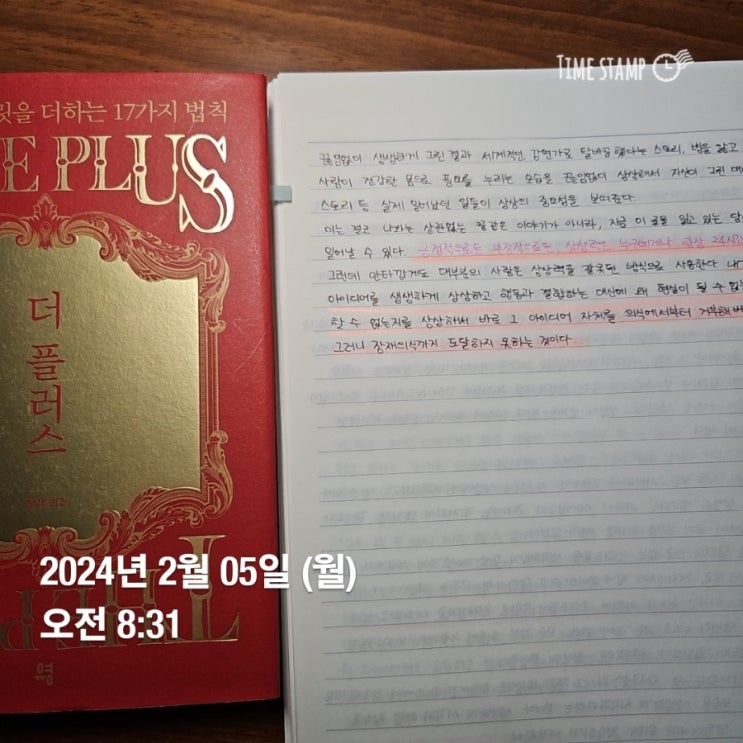 TIME STAMP
릿을 더하는 17가지 법칙
E PLUS
더 플러스
THE P
2024년 2월 05일 (월)
오전 8:31
끊임없이 생생하게 그린 결과 세계적인 강연가로 탈바꿈했다는 스토리, 병을 앓고
사람이 건강한 몸으로 풍요를 누리는 모습을 끊임없이 상상해서 자신이 그린 대
스토리 등 실제 일어났던 일들이 상상의 중요성을 보여준다.
이는 결코 나와는 상관없는 꿈같은 이야기가 아니라, 지금 이 글을 읽고 있는 당
일어날 수 있다. 긍정적으로든 부정적으로든, 상상력은 누구에게나 항상 24시간
그런데 안타깝게도 대부분의 사람은 상상력을 잘못된 방식으로 사용한다. 내
아이디어를 생생하게 상상하고 행동과 결합하는 대신에 왜 현실이 될 수 없는
할 수 없는지를 상상해서 바로 그 아이디어 자체를 의식에서부터 거부해버
그러니 잠재의식까지 도달하지 못하는 것이다.